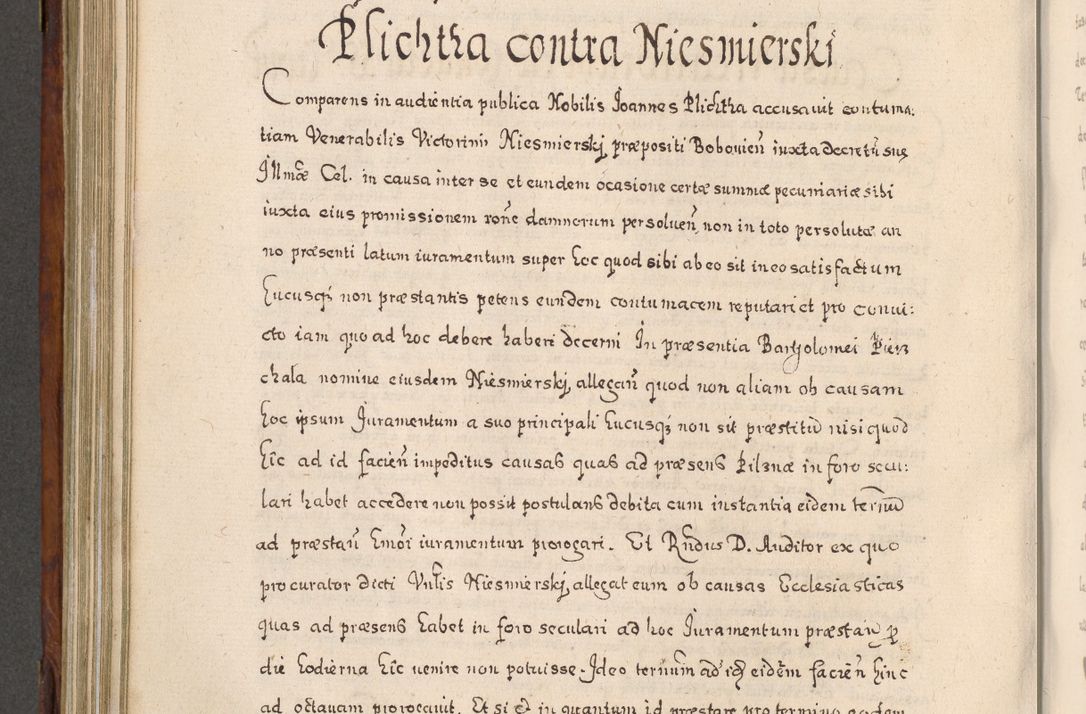 Plichtha contra Niesmierski
Comparens in audientia publica Nobilis Joannes Plichtha accusavit contuma:
tiam Venerabilis Victorini Niesmierskj præpositi Bobovien̄ iuxta decretū suę
Jllmæ Cel. in causa inter se et eundem ocasione certæ summæ pecuniariæ sibi
iuxta eius promissionem rōne damnorum persoluen̄ non in toto persolutæ an
no præsenti latum iuramentum super hoc quod sibi ab eo sit in eo satisfactum
hucusq; non præstantis petens eundem contumacem reputari et pro convi:
cto iam quo ad hoc debere haberi decerni Jn præsentia Bartholomei Pierz
chala nomine eiusdem Niesmierskj, allegan̄ quod non aliam ob causam
hoc ipsum Juramentum a suo principali hucusq; non sit præstitū nisi quod
hic ad id facien̄ impeditus causas quas ad præsens Pilznæ in foro secu:
lari habet accedere non possit postulans debita cum instantia eidem terīnū
ad præstan̄ hmōi iuramentum prorogari. Et Rn̄dus D. Auditor ex quo
procurator dicti Vn̄lis Niesmierskj, allegat eum ob causas Ecclesiasticas
quas ad præsens habet in foro seculari ad hoc Juramentum præstan̄ p
die hodierna hic venire non potuisse. Jdeo terīnum ad id eidem facien̄ hinc
ad octavam prorogavit. Et si et in quantum id præstare pro termino eodem